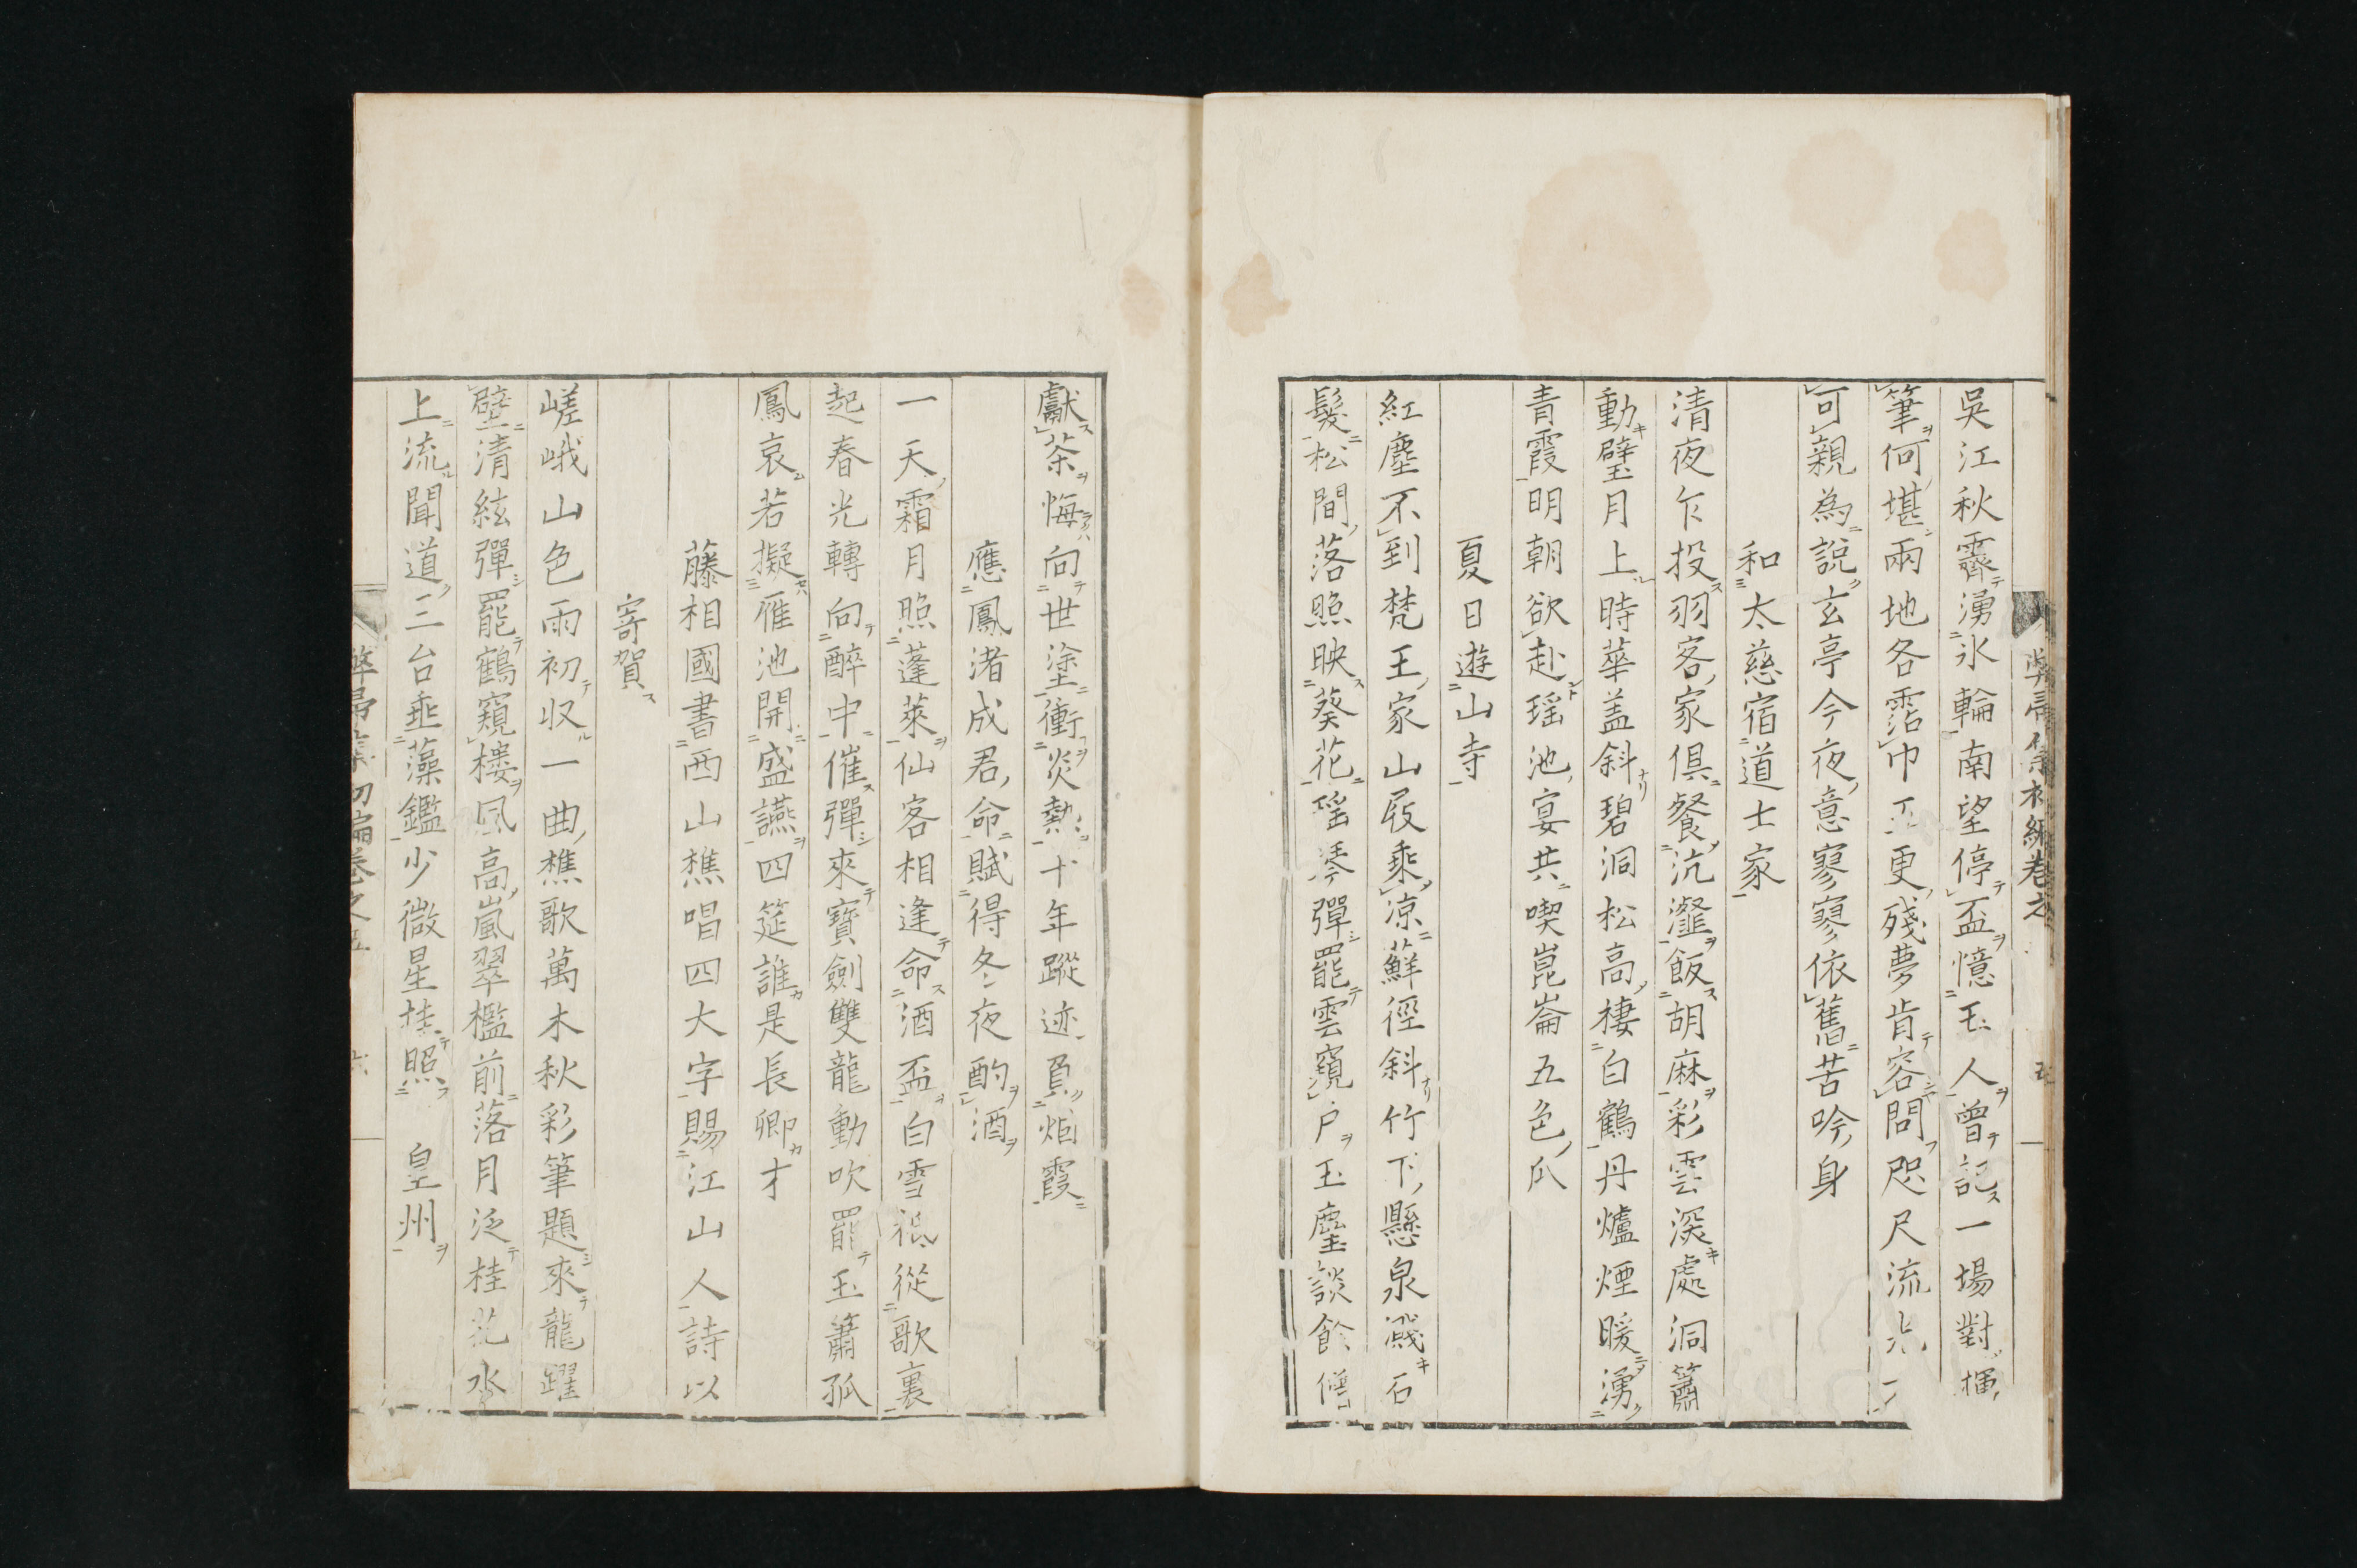 吳江秋霽湧氷輪南望停盃憶玉人曾記一場對揮
筆何堪兩地各霑巾五更殘夢肯容問咫尺流
可親為說玄亭今夜意寥寥依舊苦吟身
和太慈宿道士家
清夜乍投羽客家俱餐沆瀣飯胡麻彩雲深處洞簫
動璧月上時華盖斜碧洞松高棲白鶴丹爐煙暖湧
青霞明朝欲赴瑶池宴共喫崑崙五色瓜
夏日遊山寺
紅塵不到梵王家山屐乘凉蘚徑斜竹下懸泉濺石
髮松間落照映葵花瑶琴彈罷雲窺戶玉麈談餘僧
獻茶悔向世塗衝炎熱十年蹤迹負烟霞
應鳳渚成君命賦得冬夜酌酒
一天霜月照蓬萊仙客相逢命酒盃白雪秪從歌裏
起春光轉向醉中催彈來寶劍雙龍動吹罷玉簫孤
鳳哀若擬雁池開盛讌四筵誰是長卿才
藤相國書西山樵唱四大字賜江山人詩以
寄賀
嵯峨山色雨初収一曲樵歌萬木秋彩筆題來龍躍
壁清絃彈罷鶴窺樓風高嵐翠檻前落月泛桂花水
上流聞道三台垂藻鑑少微星彩照皇州